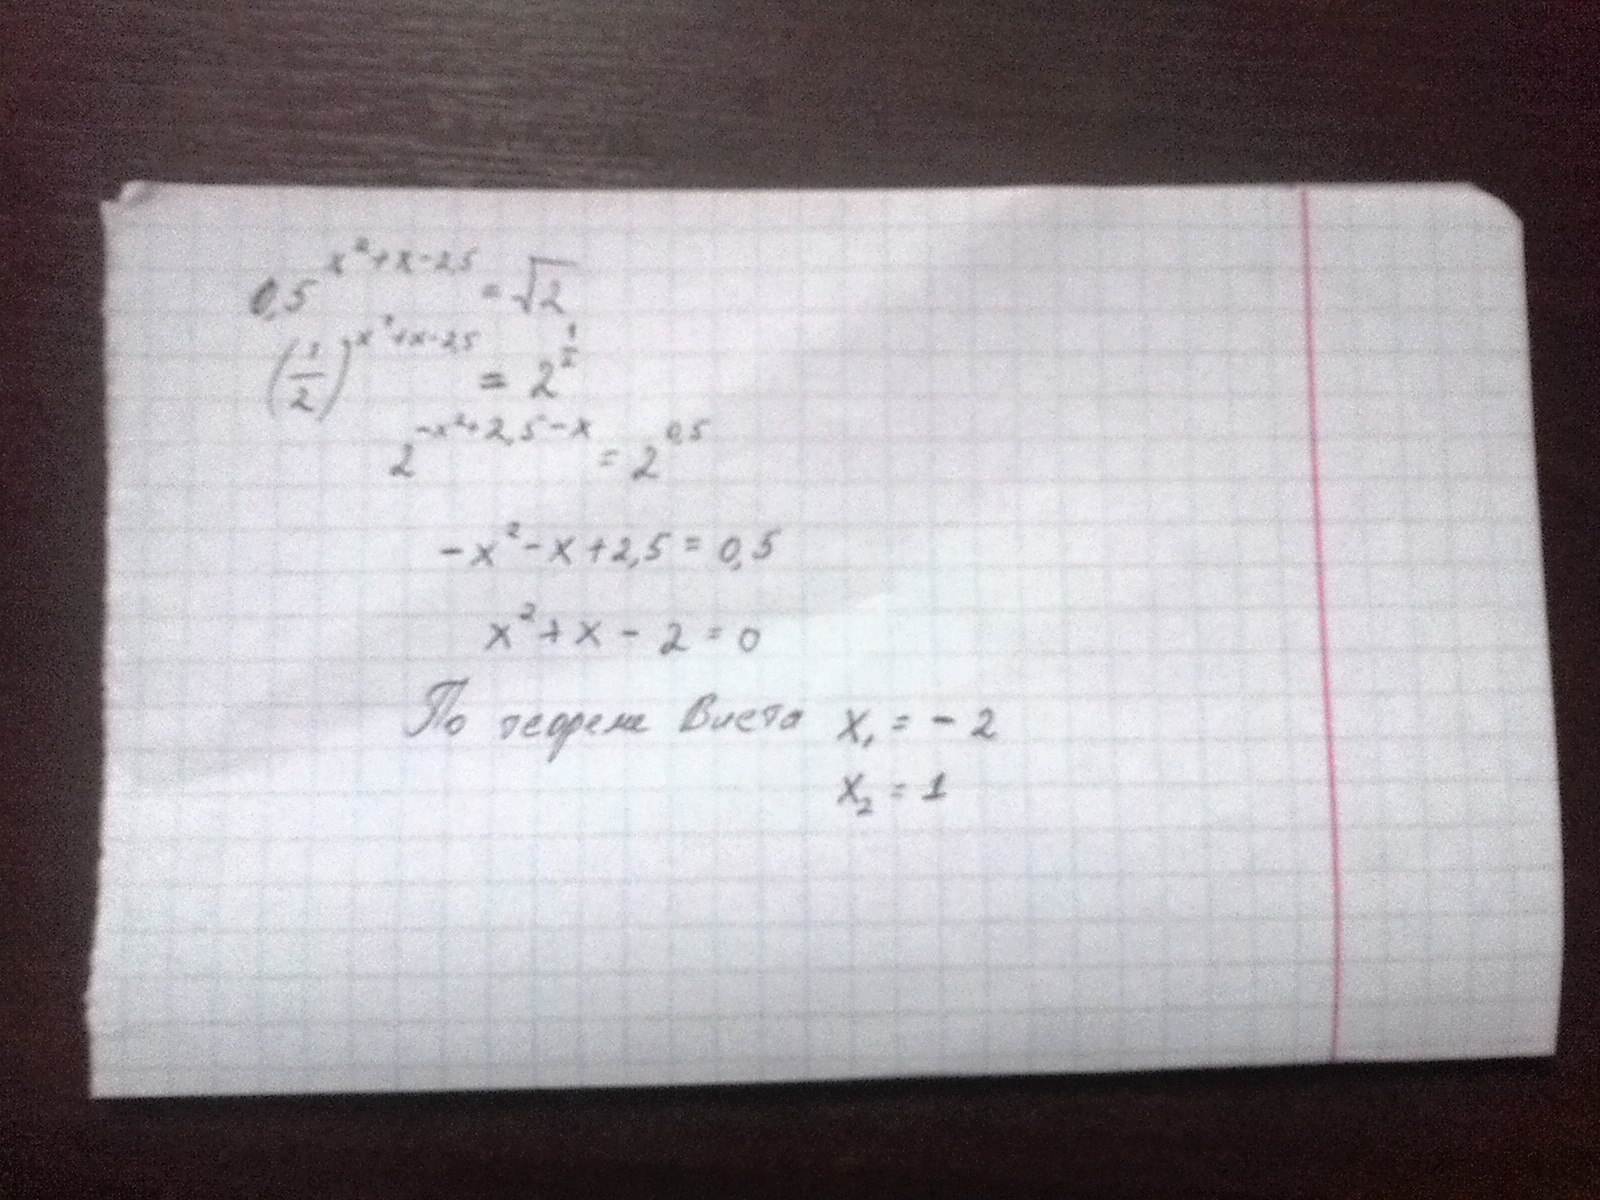 0,5^{x²+x-2,5} = √2
(1/2)^{x²+x-2,5} = 2^{1/2}
2^{-x²+2,5-x} = 2^{0,5}
-x²-x+2,5 = 0,5
x²+x-2=0
По теореме Виета x₁ = -2
x₂ = 1